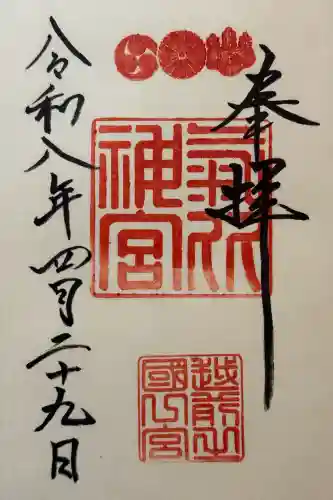 奉拝
氣比神宮
越前之國一宮
令和八年四月二十九日